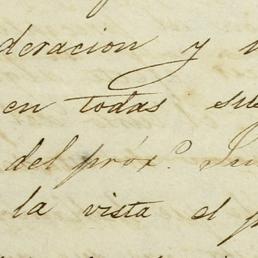 deracion y
en todas sus
del próx.º
la vista el